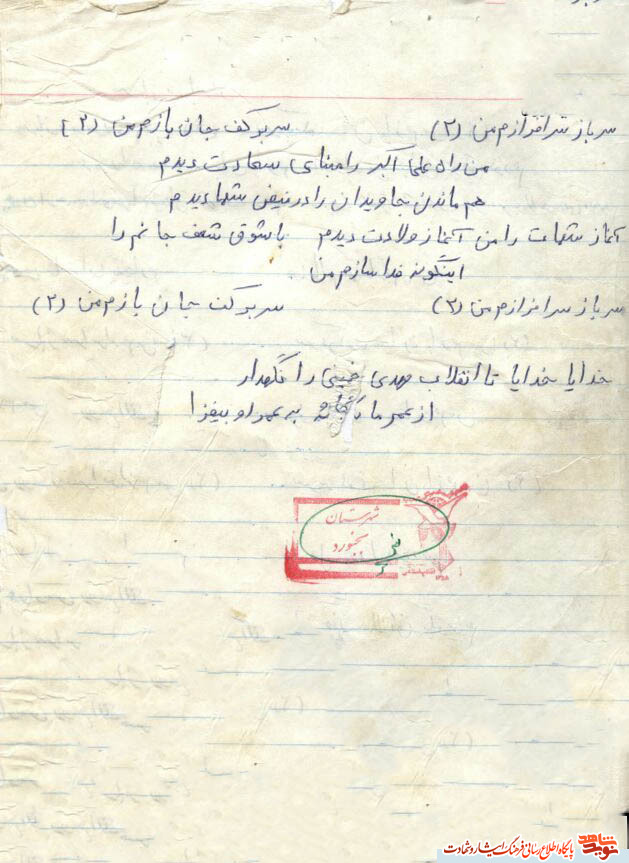 سرباز سرافرازم من (۲) سربرکف جان بازم من (۲)
من راه علی اکبر را مبنای سعادت دیدم
هم ماندن جاویدان را در فیض شما دیدم
آغاز شهادت را من آغاز ولادت دیدم با شوق شعف جانم را
اینگونه فدا سازم من
سرباز سرافرازم من (۲) سربرکف جان بازم من (۲)
خدایا خدایا تا انقلاب مهدی خمینی را نگهدار
از عمر ما به عمر او بیفزا
شهرستان
بجنورد
نوید شاهد
پایگاه اطلاع رسانی فرهنگ ایثار و شهادت